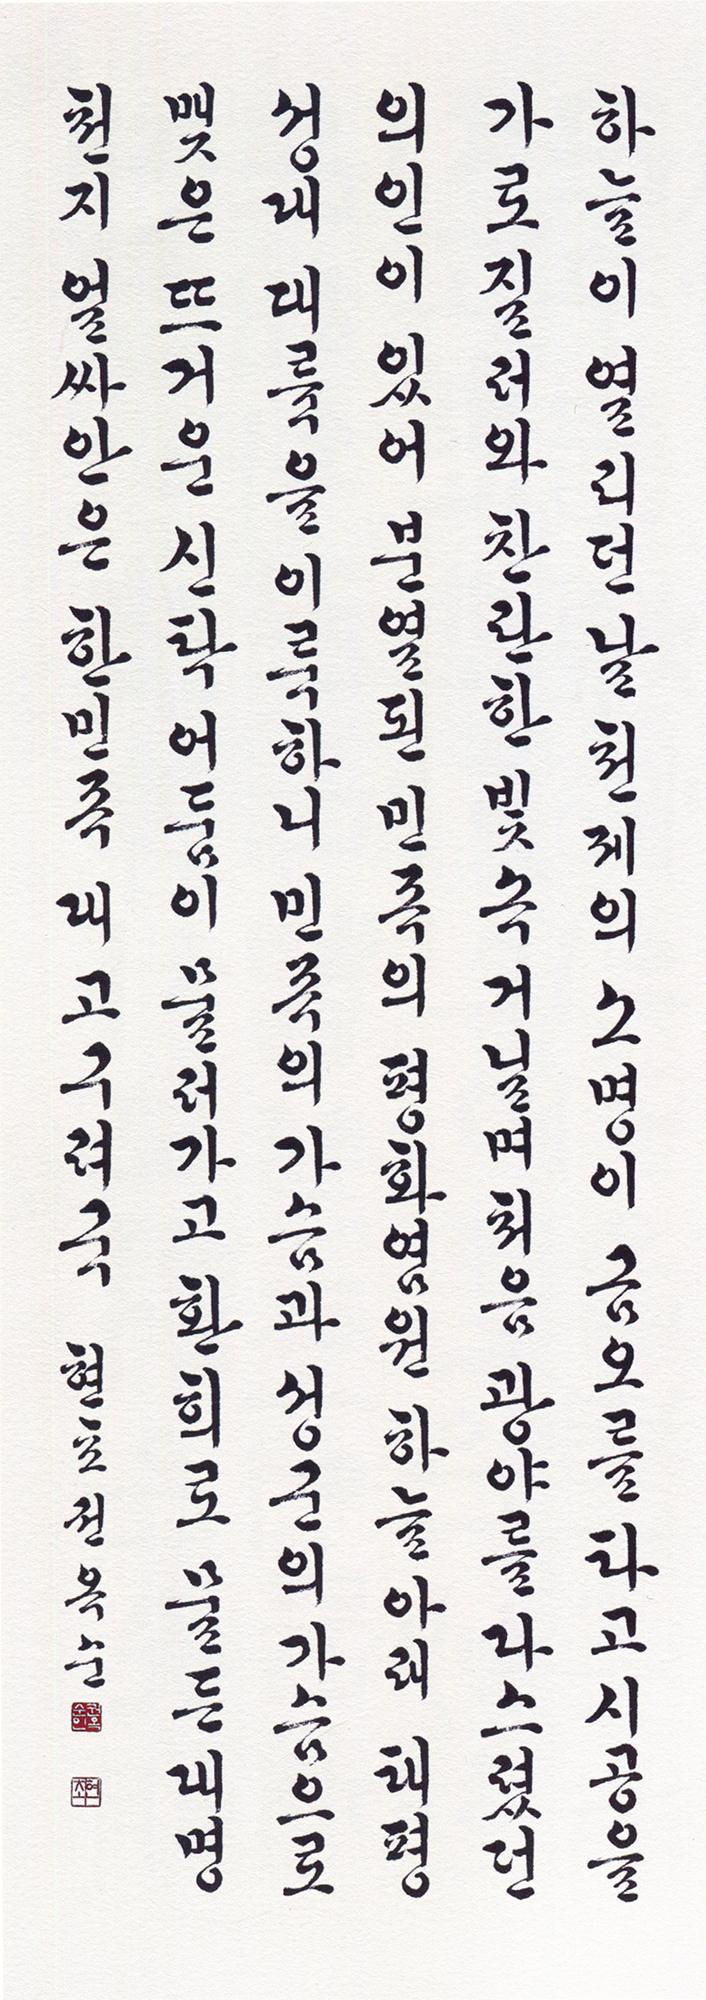 하늘이 열리던 날 천제의 소명이 금오를 타고 시공을
가로질러와 찬란한 빛 속 거닐며 처음 광야를 다스렸던
의인이 있어 분열된 민족의 평화염원 하늘아래 태평
성대 대륙을 이룩하니 민족의 가슴과 성군의 가슴으로
맺은 뜨거운 신탁 어둠이 물러가고 환희로 물든 대명
천지 얼싸안은 한민족 대고구려국 현초 전옥순